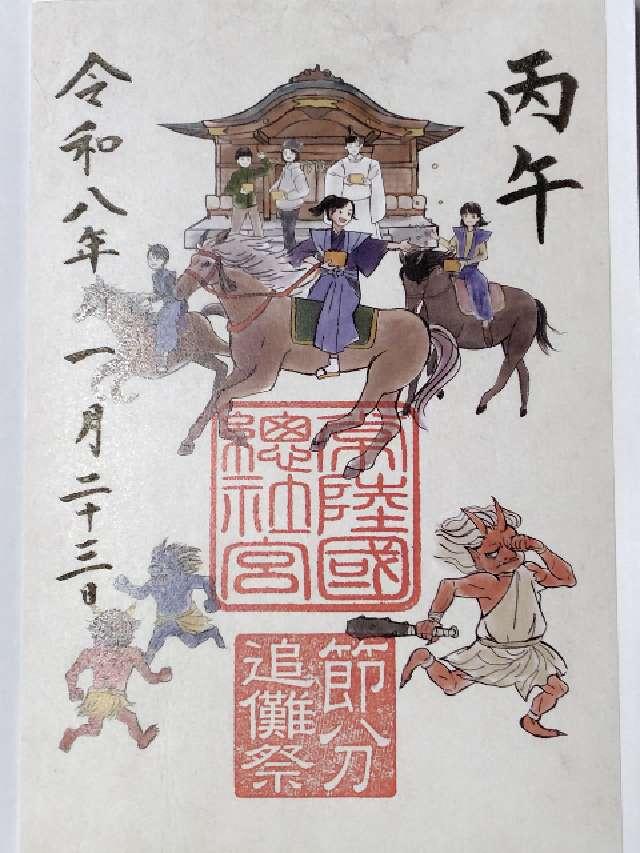 丙午
常陸國
總社宮
節分
追儺祭
令和八年 一月二十三日